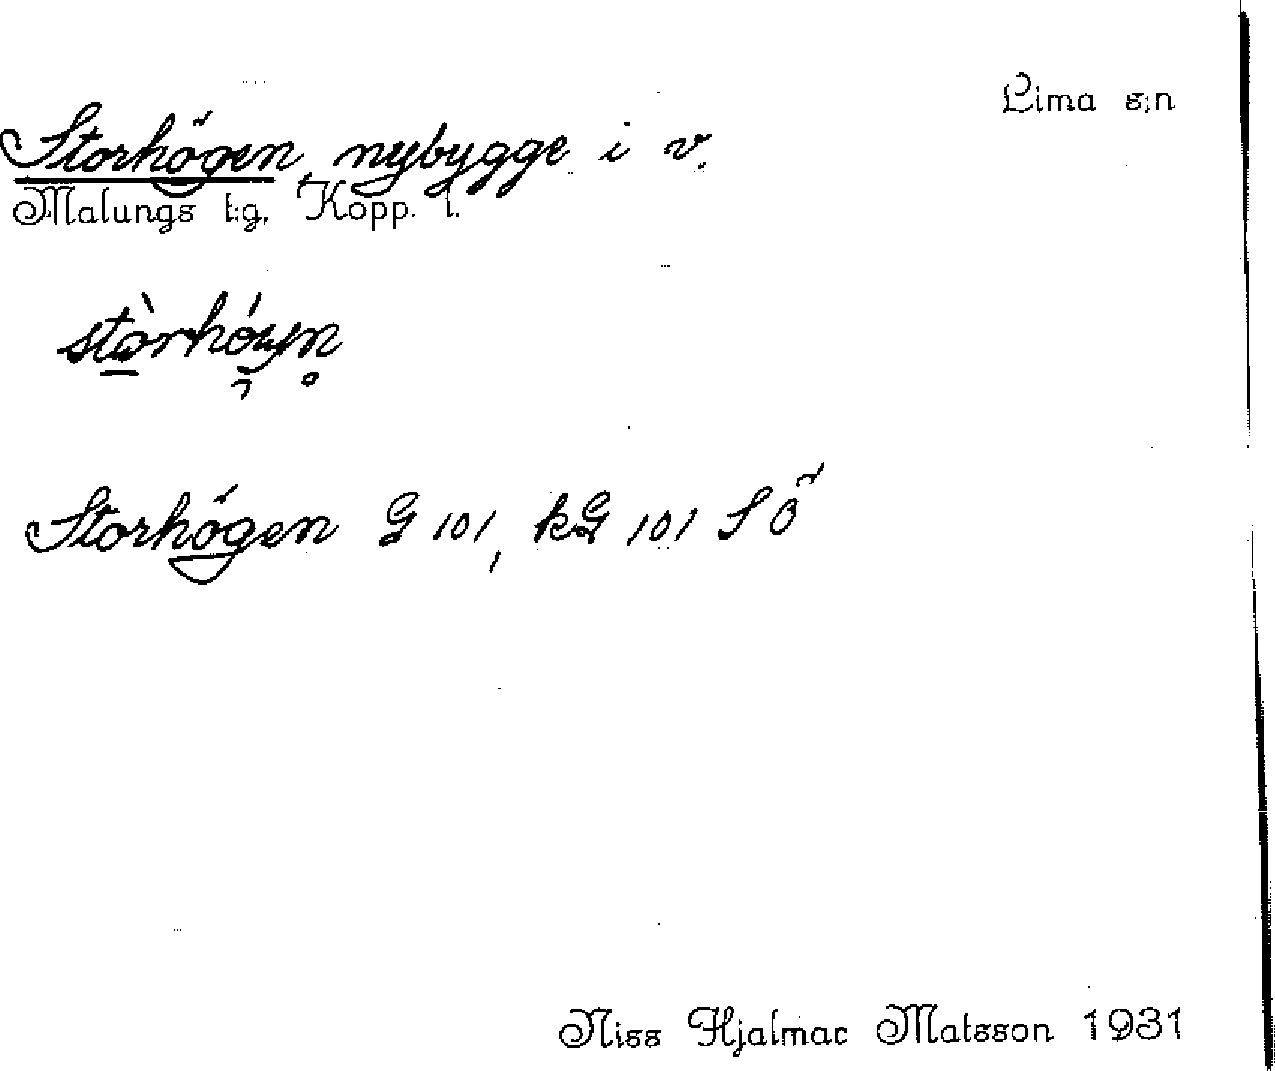 Lima s:n
Storhögen, nybygge i v.
Malungs t:g, Kopp. l.
stòrhóyn
Storhögen G 101, kG 101 SÖ
Niss Hjalmar Matsson 1931